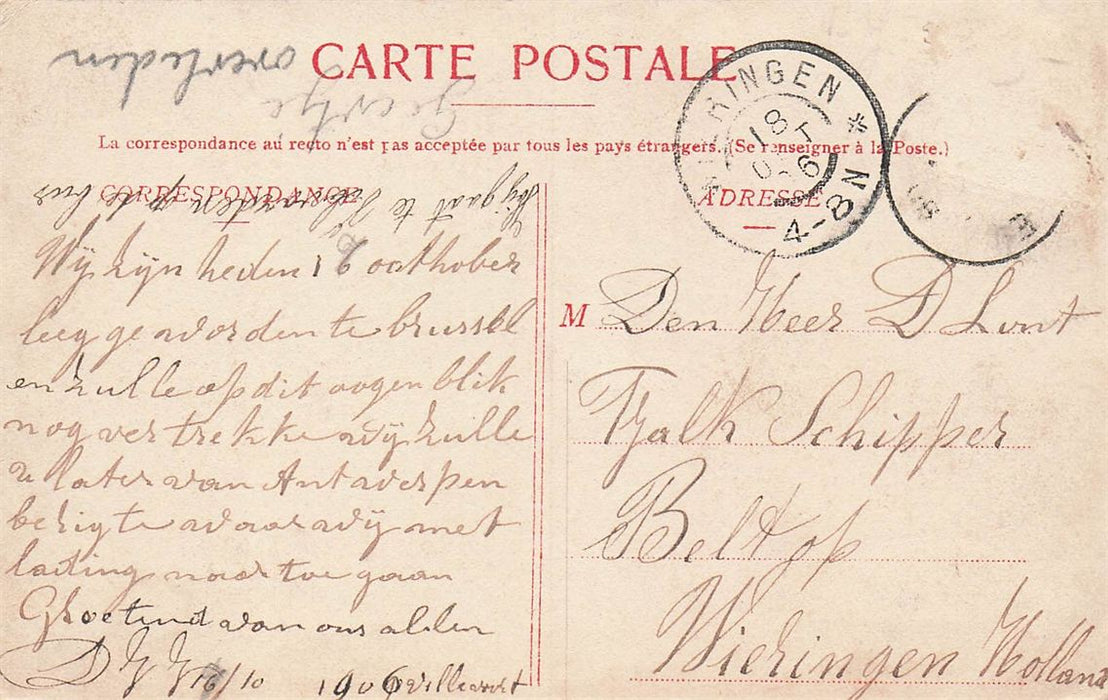 CARTE POSTALE
overleden
Geertje
La correspondance au recto n'est pas acceptée par tous les pays étrangers. (Se renseigner à la Poste.)
CORRESPONDANCE
ADRESSE
gaat te
Wij zijn heden 16 oocthober
leeg geworden te brussel
en zulle op dit oogen blik
nog vertrekke wij zulle
u later van Antwerpen
berigte waar wij met
lading naar toe gaan
Groetend van ons allen
16/10 1906 villevort
M Den Heer D Lont
Tjalk Schipper
Belt op
Wieringen Holland
WIERINGEN * N
18 OCT 06
4-8